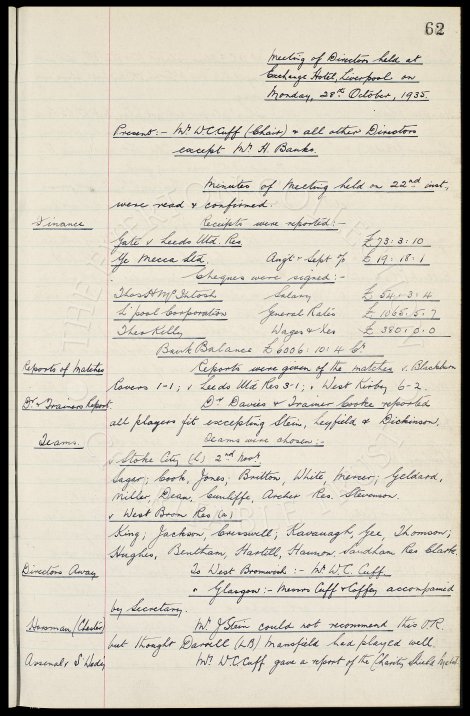 62
Meeting of Directors held at
Exchange Hotel, Liverpool on
Monday, 28th October, 1935.
Present:- Mr. W.C. Cuff (Chair) & all other Directors
except Mr. H. Banks.
Minutes of Meeting held on 22nd inst,
were read & confirmed.
Finance
Receipts were reported:-
Gate v Leeds Utd. Res £73:3:10
Ye Mecca Ltd. Augt & Sept £19:18:1
Cheques were signed:-
Thos. H. McIntosh Salary £54:3:4
L'pool Corporation General Rates £1065:5:7
Theo Kelly Wages & Xes £380:0:0
Bank Balance £6006:10:4 Cr.
Reports of Matches
Reports were given of the matches v. Blackburn
Rovers 1-1; v Leeds Utd Res 3-1; v West Kirby 6-2.
Dr & Trainers Report
Dr Davies & Trainer Cooke reported
all players fit excepting Stein, Leyfield & Dickinson.
Teams.
Teams were chosen:-
v. Stoke City (L) 2nd Novr.
Sagar; Cook, Jones; Britton, White, Mercer; Geldard,
Miller, Dean, Cunliffe, Archer Res. Stevenson.
v West Brom Res (a)
King; Jackson, Cresswell; Kavanagh, Gee, Thomson;
Hughes, Bentham, Hartill, Hannon Sandham Res Clarke.
Directors Away
To West Bromwich:- Mr. W.C. Cuff
" Glasgow:- Messrs Cuff & Coffey accompanied
by Secretary.
Horsman (Chester)
Mr J Stein could not recommend this O.R.
but thought Darvill (LB) Mansfield had played well.
Arsenal v S Wedey
Mr. W.C. Cuff gave a report of the Charity Shield Match.